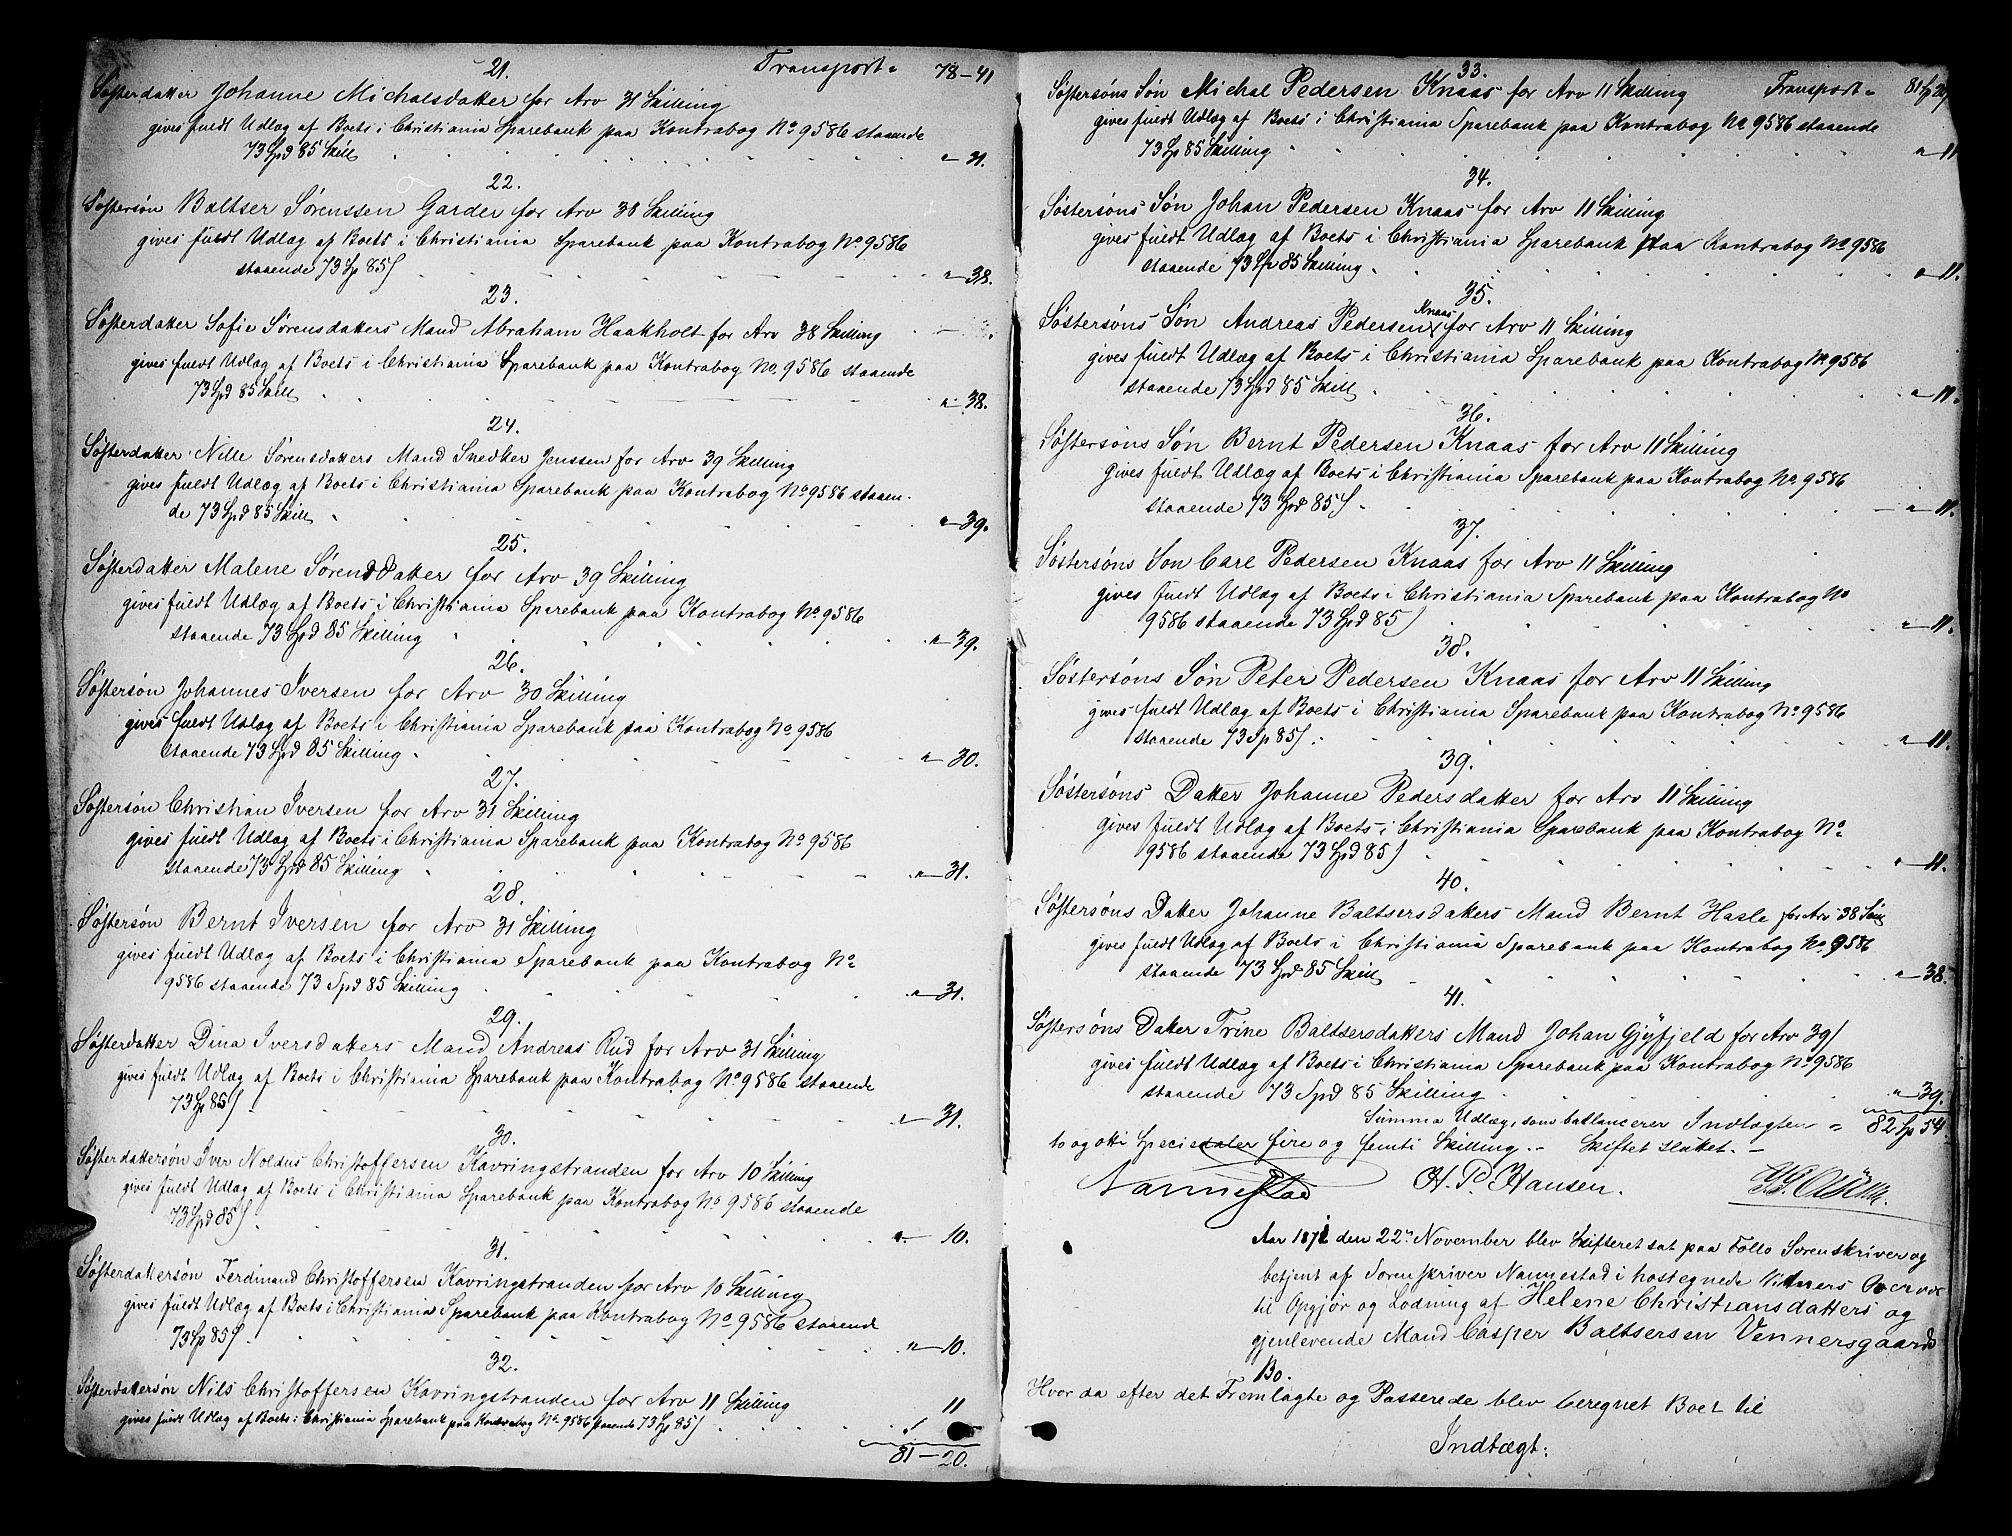 21. Transport „ 78-41
Søsterdatter Johanne Michalsdatter for Arv 31 Skilling
gives fuldt Udlæg af Boets i Christiania Sparebank paa Kontrabog No 9586 staaende
73 Spd 85 Skill „-31.
22.
Søstersøn Baltser Sørenssen Garder for Arv 38 Skilling
gives fuldt Udlæg af Boets i Christiania Sparebank paa Kontrabog No 9586
staaende 73 Sp 85 ſ „-38.
23.
Søsterdatter Sofie Sørensdatters Mand Abraham Haakholt for Arv 38 Skilling
gives fuldt Udlæg af Boets i Christiania Sparebank paa Kontrabog No 9586 staaende
73 Spd 85 Skill „-38.
24.
Søsterdatter Nille Sørensdatters Mand Snedker Jenssen for Arv 39 Skilling
gives fuldt Udlæg af Boets i Christiania Sparebank paa Kontrabog No 9586 staaen-
de 73 Spd 85 Skill „-39.
25.
Søsterdatter Malene Sørensdatter for Arv 39 Skilling
gives fuldt Udlæg af Boets i Christiania Sparebank paa Kontrabog No 9586
staaende 73 Spd 85 Skilling „-39.
26.
Søstersøn Johannes Iversen for Arv 30 Skilling
gives fuldt Udlæg af Boets i Christiania Sparebank paa Kontrabog No 9586
staaende 73 Spd 85 Skilling „-30.
27.
Søstersøn Christian Iversen for Arv 31 Skilling
gives fuldt Udlæg af Boets i Christiania Sparebank paa Kontrabog No 9586
staaende 73 Spd 85 Skilling „-31.
28.
Søstersøn Bernt Iversen for Arv 31 Skilling
gives fuldt Udlæg af Boets i Christiania Sparebank paa Kontrabog No
9586 staaende 73 Spd 85 Skilling „-31.
29.
Søsterdatter Dina Iversdatters Mand Andreas Rud for Arv 31 Skilling
gives fuldt Udlæg af Boets i Christiania Sparebank paa Kontrabog No 9586 staaende
73 Sp 85 ſ „-31.
30.
Søsterdattersøn Iver Noldus Christoffersen Kavringstranden for Arv 10 Skilling
gives fuldt Udlæg af Boets i Christiania Sparebank paa Kontrabog No 9586 staaende
73 Spd 85 ſ „-10.
31.
Søsterdattersøn Ferdinand Christoffersen Kavringstranden for Arv 10 Skilling
gives fuldt Udlæg af Boets i Christiania Sparebank paa Kontrabog No 9586 staaende
73 Sp 85 ſ „-10.
32.
Søsterdattersøn Nils Christoffersen Kavringstranden for Arv 11 Skilling 11
gives fuldt Udlæg af Boets i Christiania Sparebank paa Kontrabog No 9586 staaende 73 Sp 85 ſ
81-20.
33.
Søstersøns Søn Michal Pedersen Knaas for Arv 11 Skilling Transport „ 81 Sp 20
gives fuldt Udlæg af Boets i Christiania Sparebank paa Kontrabog No 9586 staaende
73 Sp 85 Skilling „-11
34.
Søstersøns Søn Johan Pedersen Knaas for Arv 11 Skilling
gives fuldt Udlæg af Boets i Christiania Sparebank paa Kontrabog No 9586
staaende 73 Sp 85 Skilling „-11.
35.
Søstersøns Søn Andreas Pedersen Knaas for Arv 11 Skilling
gives fuldt Udlæg af Boets i Christiania Sparebank paa Kontrabog No 9586
staaende 73 Spd 85 Skill „-11.
36.
Søstersøns Søn Bernt Pedersen Knaas for Arv 11 Skilling
gives fuldt Udlæg af Boets i Christiania Sparebank paa Kontrabog No 9586
staaende 73 Spd 85 ſ „-11.
37.
Søstersøns Søn Carl Pedersen Knaas for Arv 11 Skilling
gives fuldt Udlæg af Boets i Christiania Sparebank paa Kontrabog No
9586 staaende 73 Spd 85 ſ „-11.
38.
Søstersøns Søn Peter Pedersen Knaas for Arv 11 Skilling
gives fuldt Udlæg af Boets i Christiania Sparebank paa Kontrabog No 9586
staaende 73 Sp 85 ſ „-11.
39.
Søstersøns Datter Johanne Pedersdatter for Arv 11 Skilling
gives fuldt Udlæg af Boets i Christiania Sparebank paa Kontrabog No
9586 staaende 73 Spd 85 ſ „-11.
40.
Søstersøns Datter Johanne Baltsersdatters Mand Bernt Hasle for Arv 38 Skill
gives fuldt Udlæg af Boets i Christiania Sparebank paa Kontrabog No 9586
staaende 73 Spd 85 Skill „-38.
41.
Søstersøns Datter Trine Baltsersdatters Mand Johan Gjyfjeld for Arv 39 ſ
gives fuldt Udlæg af Boets i Christiania Sparebank paa Kontrabog No 9586
staaende 73 Spd 85 Skilling „-39.
Summa Udlæg, som ballancerer Indtægten „ 82 Sp 54
to og otti Speciedaler fire og femti Skilling. - Skiftet sluttet. -
Nannestad H. P. Hansen.
Aar 1871 den 22de November blev Skifteret sat paa Follo Sorenskriveri og
betjent af Sorenskriver Nannestad i hostegnede Vidners Overvær
til Opgjør og Lodning af Helene Christiansdatters og
gjenlevende Mand Casper Baltsersen Vennersgaards
Bo.
Hvor da efter det Fremlagte og Passerede blev beregnet Boet til
Indtægt: